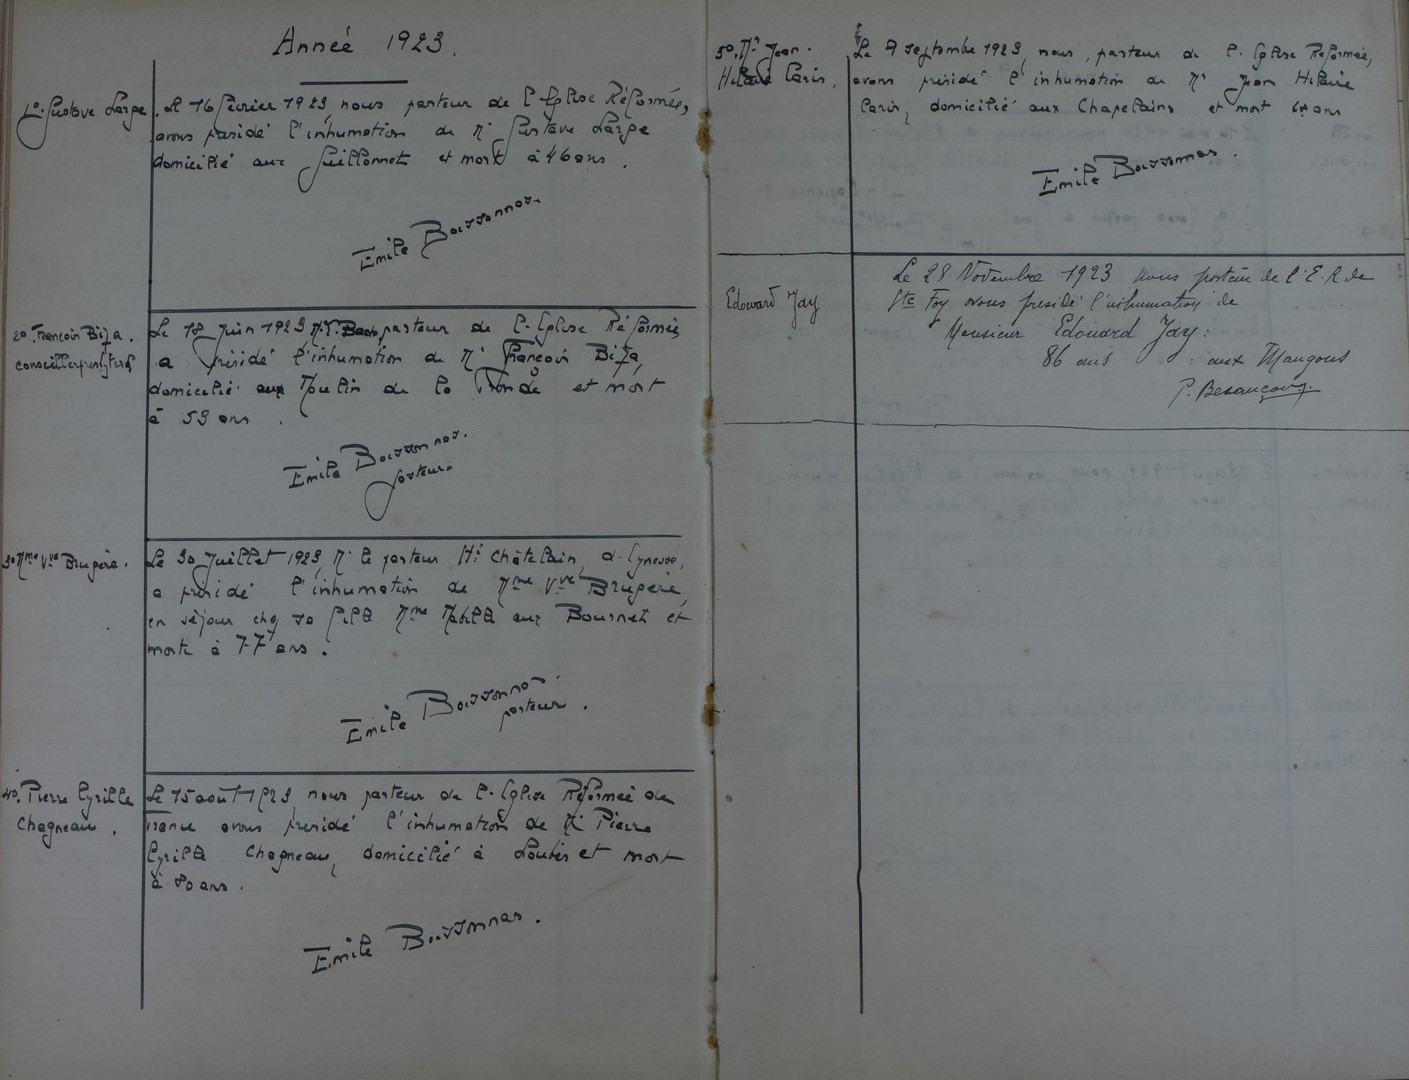 Année 1923.
1º. Gustave Large
Le 16 février 1923, nous pasteur de l'Eglise Réformée,
avons présidé l'inhumation de Mr Gustave Large
domicilié aux Guillonnets et mort à 46 ans.
Emile Boissonnas.
2º François
conseiller presbytéral
Le 18 Juin 1923 pasteur de l'Eglise Réformée
a présidé l'inhumation de Mr François
domicilié aux Moulin de la et mort
à 53 ans.
Emile Boissonnas.
pasteur.
3º Mme Vve Brugère.
Le 30 Juillet 1923, Mr le pasteur Hi Châtelain, d'Eynesse,
a présidé l'inhumation de Mme Vve Brugère,
en séjour chez sa fille Mme aux Bournets et
morte à 77 ans.
Emile Boissonnas
pasteur.
4º. Pierre Cyrille
Chagneau.
Le 15 août 1923, nous pasteur de l'Eglise Réformée de
France avons présidé l'inhumation de Mr Pierre
Cyrille Chagneau, domicilié à et mort
à 80 ans.
Emile Boissonnas.
5º. Mr Jean.
Hilaire Caris.
Le 9 septembre 1923, nous, pasteur de l'Eglise Réformée,
avons présidé l'inhumation de Mr Jean Hilaire
Caris, domicilié aux Chapelains et mort ans
Emile Boissonnas.
Edouard Jay
Le 28 Novembre 1923 nous pasteur de l'E.R de
Ste Foy avons présidé l'inhumation de
Monsieur Edouard Jay:
86 ans : aux Mangons
P. Besançon.